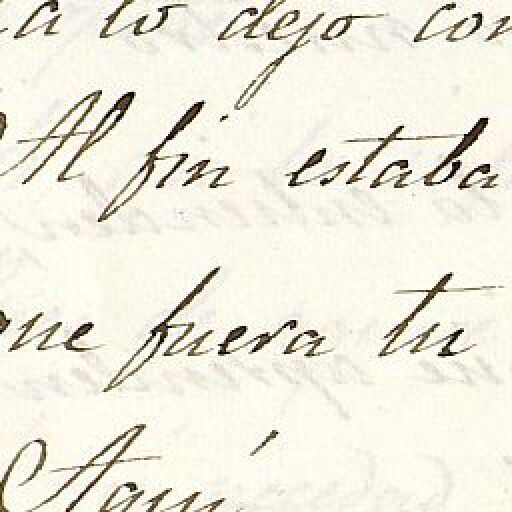 lo dejo con
Al fin estaba
que fuera tu
Aquí